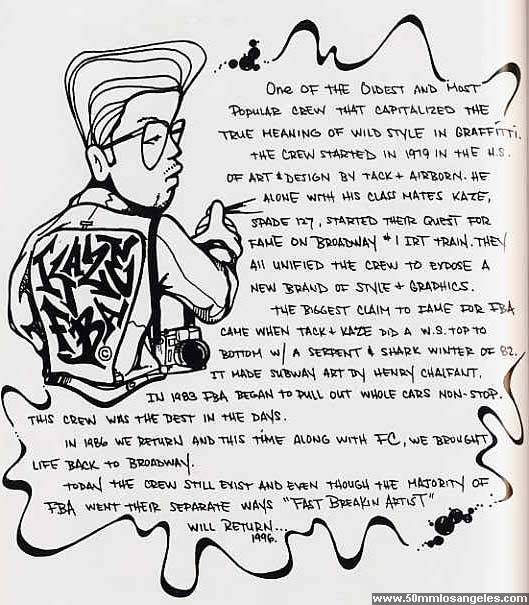 One of the Oldest and Most
Popular crew that capitalized the
true meaning of wild style in graffitti.
The crew started in 1979 in the H.S.
of Art & Design by Tack + Airborn. He
alone with his class mates Kaze,
Spade 127, started their quest for
fame on Broadway # 1 IRT train. They
all unified the crew to expose a
new brand of style & graphics.
The biggest claim to fame for FBA
came when Tack + Kaze did a W.S. top to
bottom w/ a serpent & shark winter of 82.
It made Subway Art by Henry Chalfant.
In 1983 FBA began to pull out whole cars non-stop.
This crew was the best in the days.
In 1986 we return and this time along with FC, we brought
life back to Broadway.
Today the crew still exist and even though the majority of
FBA went their separate ways "Fast Breakin Artist"
will return...
1996.
KAZE
FBA
©
www.50mmlosangeles.com